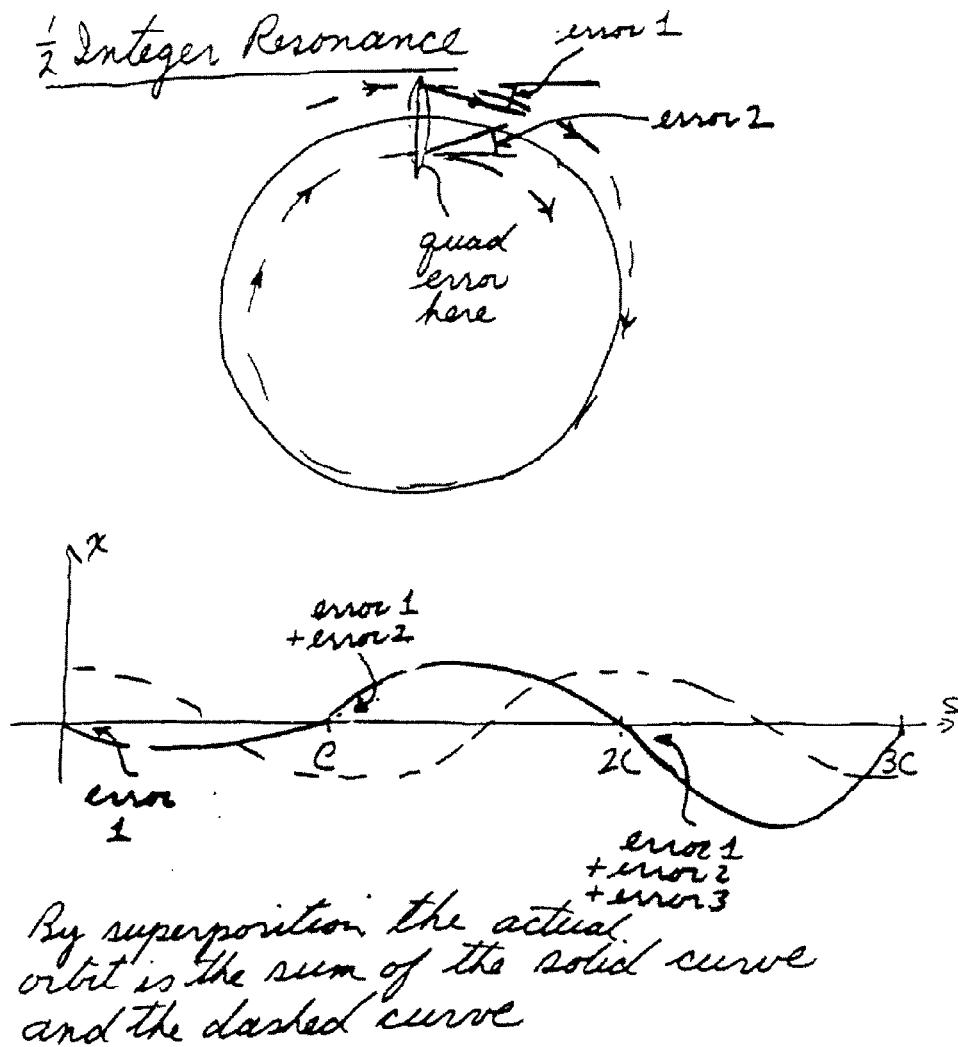 ½ Integer Resonance
error 1
error 2
quad
error
here
x
error 1
+ error 2
s
C
2C
3C
error
1
error 1
+ error 2
+ error 3
By superposition the actual
orbit is the sum of the solid curve
and the dashed curve